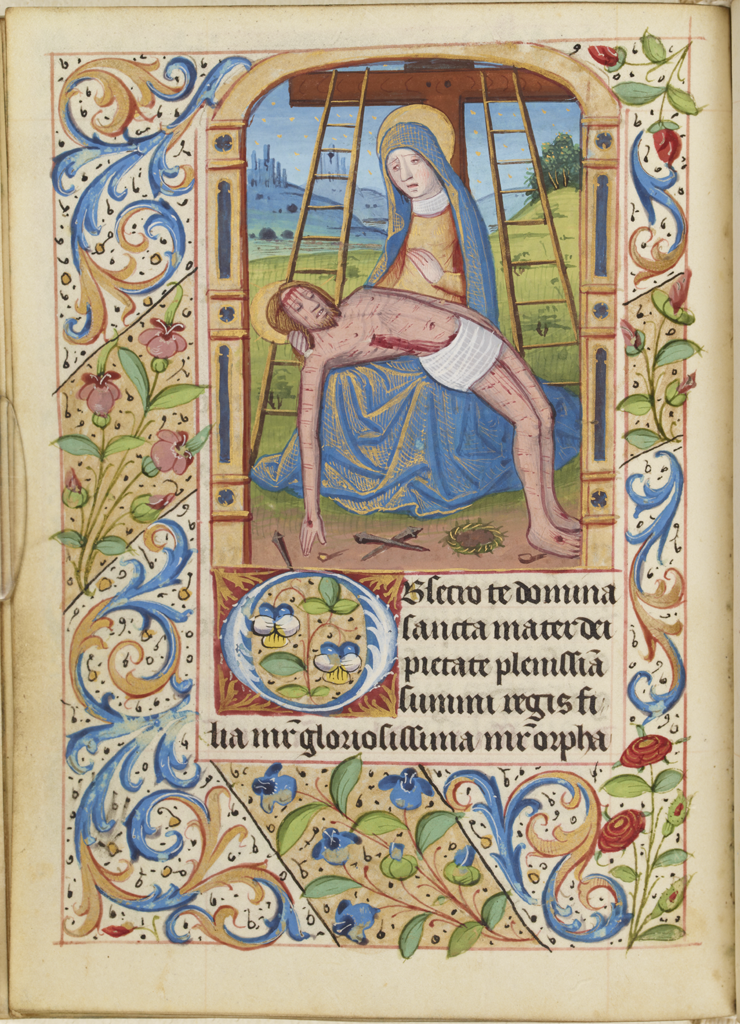 Obsecro te domina
sancta mater dei
pietate plenissiā
summi regis fi
lia mr̄ gloriosissima mr̄ orpha